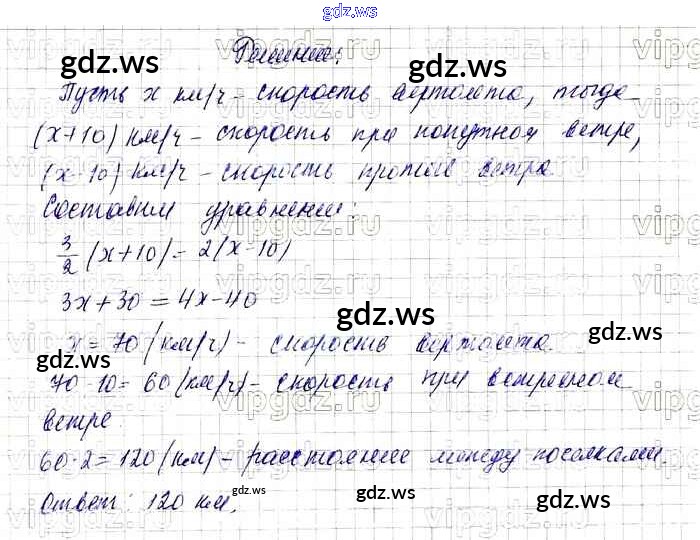 gdz.ws
Решение:
Пусть x км/ч - скорость вертолета, тогда
(x+10) км/ч - скорость при попутном ветре,
(x-10) км/ч - скорость против ветра
Составим уравнение:
3/2 (x+10) = 2(x-10)
3x+30 = 4x-40
x = 70 (км/ч) - скорость вертолета.
70-10 = 60 (км/ч) - скорость при встречном
ветре.
60·2 = 120 (км) - расстояние между поселками.
Ответ: 120 км.
gdz.ws
gdz.ws
gdz.ws
gdz.ws
gdz.ws
gdz.ws
gdz.ws
gdz.ws
gdz.ws